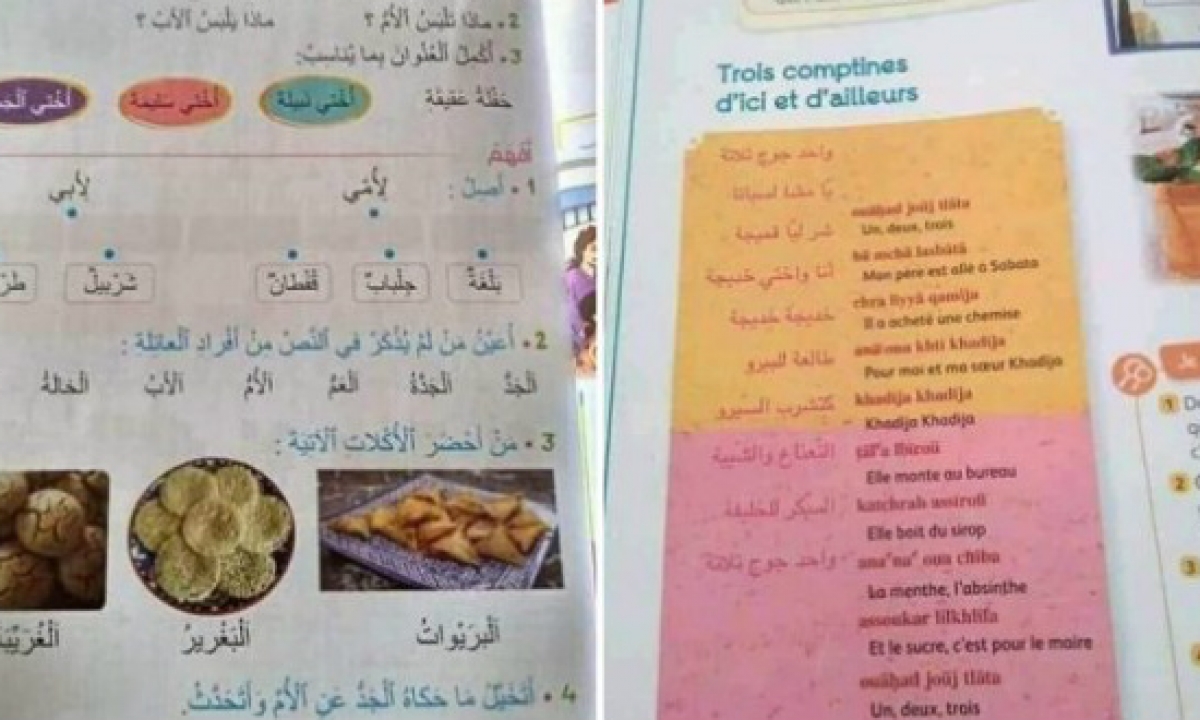 2. ماذا تَلْبَسُ ٱلْأُمُّ ؟ ماذا يَلْبَسُ ٱلْأَبُ ؟
3. أُكْمِلُ ٱلْعُنْوانَ بِما يُناسِبُ:
حَفْلَةُ عَقيقَةِ أُخْتي نَبيلَة أُخْتي سَليمَة أُخْتي
أَفْهَمُ
1. أَصِلُ :
لِأُمّي لِأَبي
بَلْغَةٌ جِلْبابٌ قُفْطانٌ شَرْبيلٌ
2. أُعَيِّنُ مَنْ لَمْ يُذْكَرْ في ٱلنَّصِّ مِنْ أَفْرادِ ٱلْعائِلَةِ :
ٱلْجَدُّ ٱلْجَدَّةُ ٱلْعَمُّ ٱلْأُمُّ ٱلْأَبُ ٱلْخالَةُ
3. مَنْ أَحْضَرَ ٱلْأَكَلاتِ ٱلْآتِيَةَ :
ٱلْبَرْيْواتُ ٱلْبَغْريرُ
4. أَتَخَيَّلُ ما حَكاهُ ٱلْجَدُّ عَنِ ٱلْأُمِّ وَأَتَحَدَّثُ.
Trois comptines
d'ici et d'ailleurs
واحد جوج ثلاثة
با مشا لسباتا
شر ليا قميجة
أنا واختي خديجة
خديجة خديجة
طالعة للبيرو
كتشرب السيرو
النعناع والشيبة
السكر للخليفة
واحد جوج ثلاثة
ouāḥad joūj tlāta
Un, deux, trois
bā mchā lasbātā
Mon père est allé à Sabata
chra liyyā qamija
Il a acheté une chemise
Pour moi et ma sœur Khadija
khadija khadija
Khadija Khadija
Elle monte au bureau
Elle boit du sirop
La menthe, l'absinthe
assoukar lilkhlifa
Et le sucre, c'est pour le maire
ouāḥad joūj tlāta
Un, deux, trois
1
2
3